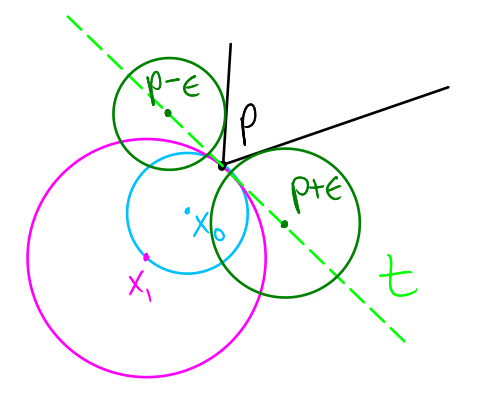 p-ϵ
p
p+ϵ
x₀
x₁
t